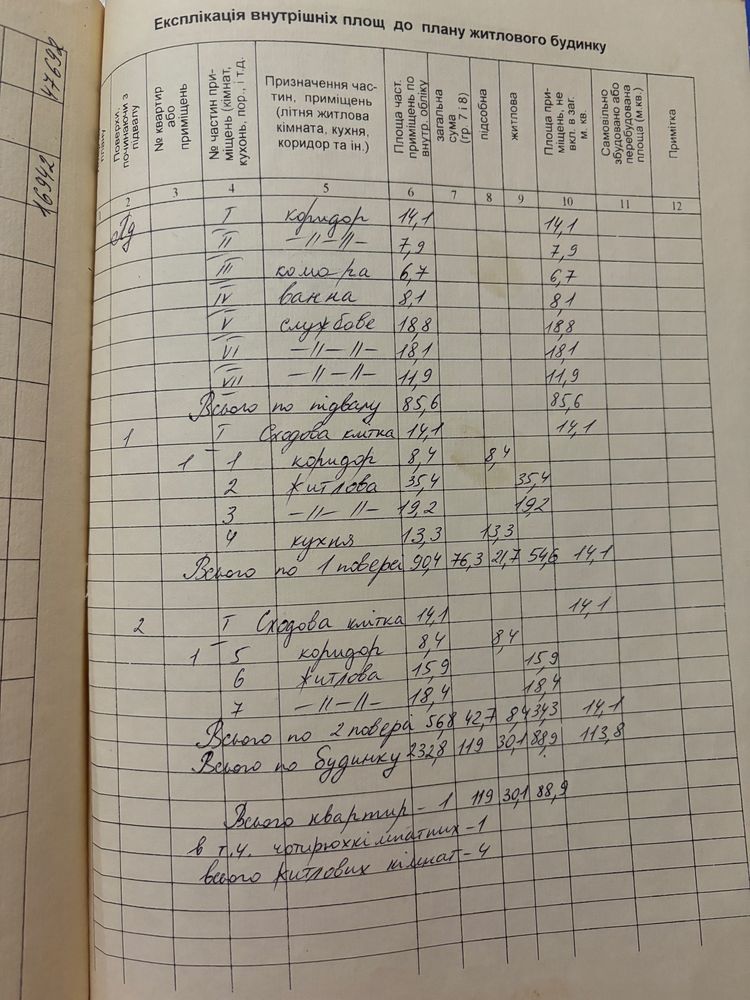 47692
16942
Експлікація внутрішніх площ до плану житлового будинку
плану
Поверхи, починаючи з підвалу
№ квартир або приміщень
№ частин приміщень (кімнат, кухонь, кор., і т.д.
Призначення частин, приміщень (літня житлова кімната, кухня, коридор та ін.)
Площа част. приміщень по внутр. обліку
загальна сума (гр. 7 і 8)
підсобна
житлова
Площа приміщень, не вкл. в заг. м. кв.
Самовільно збудовано або перебудована площа (м.кв.)
Примітка
1 2 3 4 5 6 7 8 9 10 11 12
Пд I коридор 14,1 14,1
II —//—//— 7,9 7,9
III комора 6,7 6,7
IV ванна 8,1 8,1
V службове 18,8 18,8
VI —//—//— 18,1 18,1
VII —//—//— 11,9 11,9
Всього по підвалу 85,6 85,6
1 I Сходова клітка 14,1 14,1
1 1 коридор 8,4 8,4
2 житлова 35,4 35,4
3 —//—//— 19,2 19,2
4 кухня 13,3 13,3
Всього по 1 повері 90,4 76,3 21,7 54,6 14,1
2 I Сходова клітка 14,1 14,1
1 5 коридор 8,4 8,4
6 житлова 15,9 15,9
7 —//—//— 18,4 18,4
Всього по 2 повері 56,8 42,7 8,4 34,3 14,1
Всього по будинку 232,8 119 30,1 88,9 113,8
Всього квартир - 1 119 30,1 88,9
в т.ч. чотирюхкімнатних - 1
всього житлових кімнат - 4